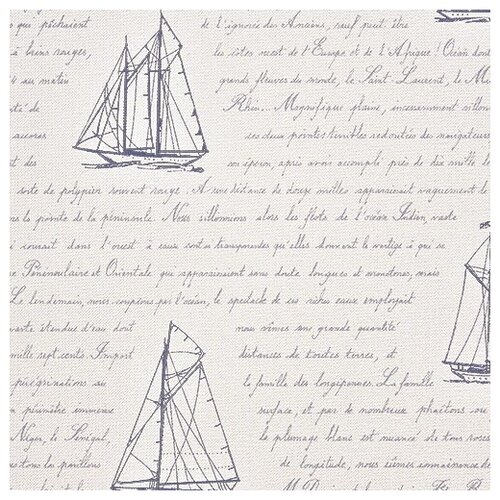 que pêchaient de l'ignorée des Anciens, sauf peut être
à bras rouges, les côtes ouest de l'Europe et de l'Afrique! Océan dont
au matin grands fleuves du monde, le Saint-Laurent, le
té de Rhin... Magnifique plaine, incessamment
accores ces deux pointes terribles redoutées des navigateurs
et des son éperon, après avoir accompli près de dix mille
sorte de polypier souvent rouge. A une distance de douze milles apparaissait vaguement le
la pointe de la péninsule. Nous sillonnions alors les flots de l'océan Indien, vaste
courait dans l'ouest à eaux sont si transparentes qu'elles donnent le vertige à qui se
Péninsulaire et Orientale qui apparaissaient sans doute longues et monotones, mais
Le lendemain, nous coupions par l'océan, le spectacle de ces riches eaux employait
vaste étendue d'eau, dont nous vîmes une grande quantité
mille sept cents. Import distances de toutes terres, et
pérégrinations au la famille des longipennes. La famille
première immense surface, et par de nombreux phaétons ou
Niger, le Sénégal, le plumage blanc est nuancé de tons roses
tous les pavillons de longitude, nous eûmes connaissance de